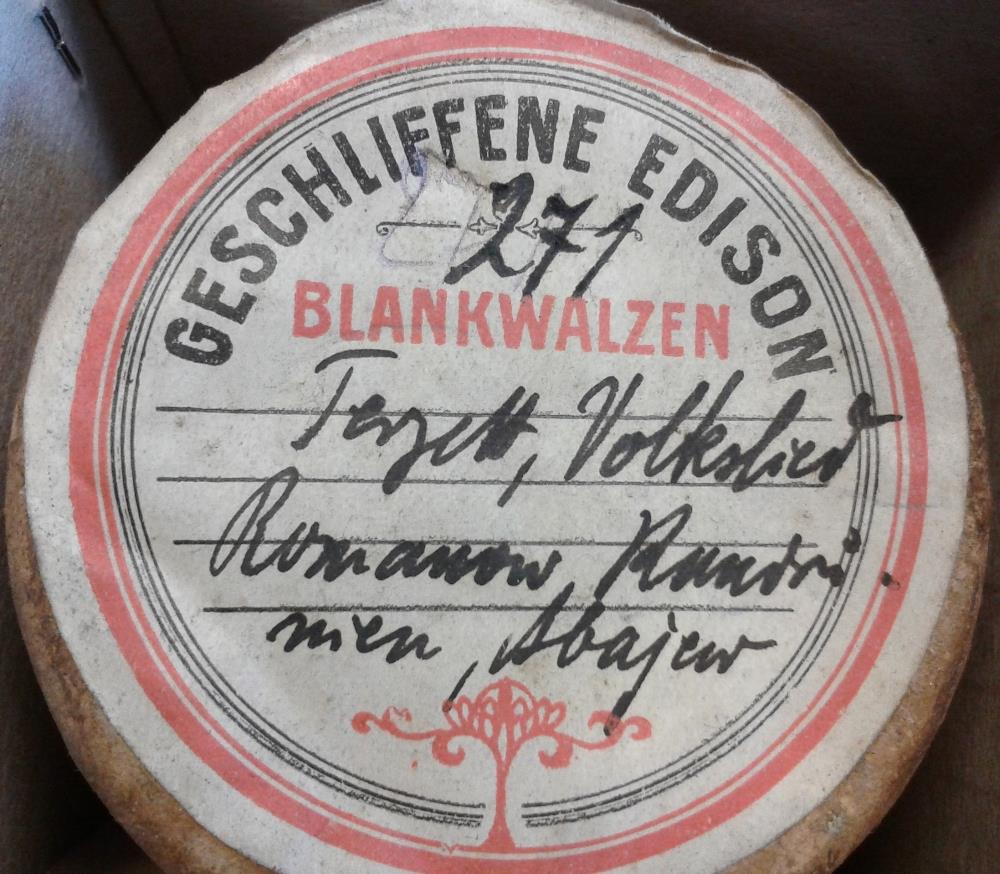 GESCHLIFFENE EDISON
271
BLANKWALZEN
Terzett, Volkslied
Romanow,
mien, Abajew